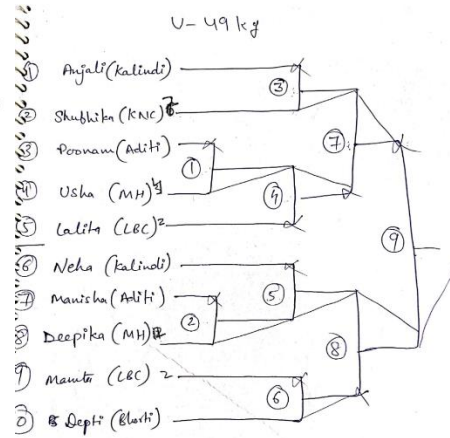 U- 49 kg
① Anjali (Kalindi)
② Shubhika (KNC)
③ Poonam (Aditi)
④ Usha (MH)
⑤ Lalita (LBC) 2
⑥ Neha (Kalindi)
⑦ Manisha (Aditi)
⑧ Deepika (MH)
⑨ Mamta (LBC) 2
0 Depti (Bharti)
③
①
⑦
④
⑨
⑤
②
⑧
⑥